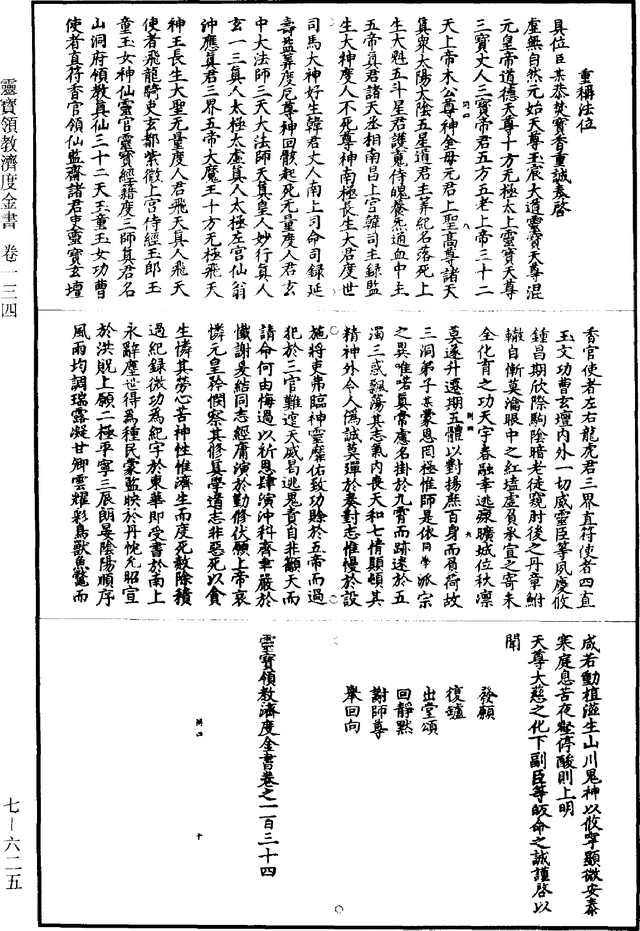 重稱法位
具位臣某恭焚寶香重誠奉啓
虛無自然元始天尊玉宸大道靈寶天尊混
元皇帝道德天尊十方无極太上靈寶天尊
三寶丈人三寶帝君五方五老上帝三十二
天上帝木公尊神金母元君上聖高尊諸天
眞衆太陽太陰五星道君主筭紀名落死上
生大魁五斗星君護魂侍魄養炁通血中主
五帝眞君諸天丞相南昌上宮韓司主録監
生大神度人不死尊神南極長生大君度世
司馬大神好生韓君丈人南上司命司録延
壽益筭度厄尊神回骸起死无量度人君玄
中大法師三天大法師天眞皇人妙行眞人
玄一三眞人太極太虛眞人太極左宮仙翁
沖應眞君三界五帝大魔王十方无極飛天
神王長生大聖无量度人君飛天眞人飛天
使者飛龍騎吏玄都紫微上宮侍經玉郎玉
童玉女神仙靈官靈寶經籍度三師眞君名
山洞府領教眞仙三十二天玉童玉女功曹
使者直符香官領仙監齋諸君吏靈寶玄壇
香官使者左右龍虎君三界直符使者四直
玉文功曹玄壇內外一切威靈臣等夙慶攸
鍾昌期欣際駒陰暗老徒窺肘後之丹章鮒
轍自慚莫瀹眼中之紅塵虛負承宣之寄未
全化育之功天宇春融幸逃
曠城位秋凜
莫遂升遷期五體以對揚庶百身而負荷故
三洞弟子某蒙恩罔極惟師是依同學派宗
之異唯喏眞常慮名掛於九霄而跡迷於五
濁三惑飄蕩其志氣內喪天和七情顛頓其
精神外令人僞誠莫殫於奏對志惟慢於設
施將吏弗臨神靈靡佑致功賒於五帝而過
犯於三官難逭天威曷逃鬼責自非籲天而
請命何由悔過以祈恩肆演沖科齋事嚴於
懺謝爰結同志經膏演於勤修伏願上帝哀
憐元皇矜閔察其修眞學道志非惡死以貪
生憐其勞心苦神性惟濟生而度死散除積
過紀録微功爲紀字於東華即受書於南上
永辭塵世得爲種民蒙監映於丹忱允昭宣
於洪貺上願二極平寧三辰朗晏陰陽順序
風雨均調瑞露凝甘卿雲耀彩鳥獸魚鼈而
咸若動植滋生山川鬼神以攸寧顯微安泰
寒庭息苦夜壑停酸則上明
天尊大慈之化下副臣等皈命之誠謹啓以
聞
發願
復鑪
出堂頌
回靜默
謝師尊
舉回向
靈寶領教濟度金書卷之一百三十四
靈寶領教濟度金書 卷一三四
七—六二五